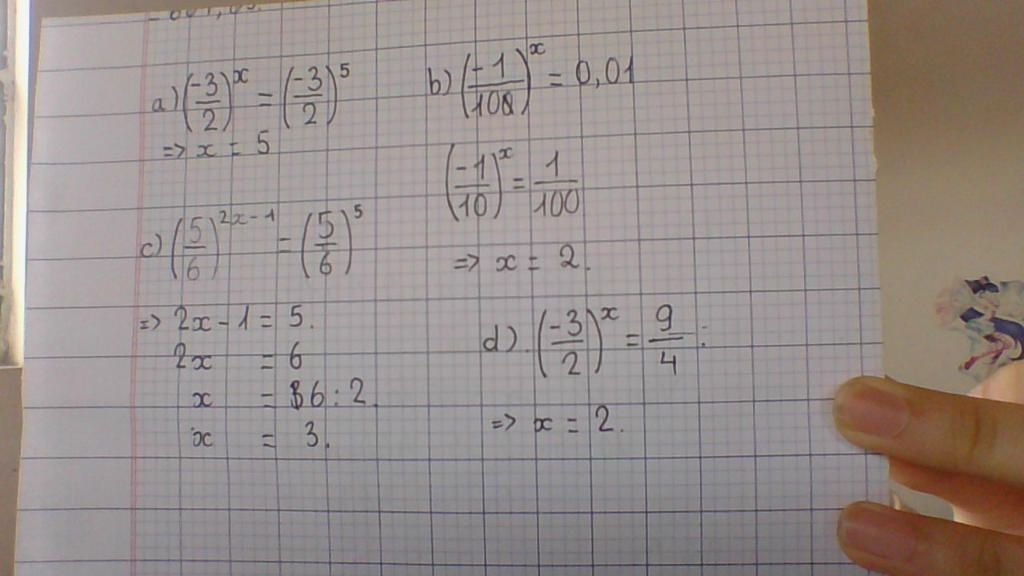 a) (-3/2)^x = (-3/2)^5
=> x = 5
b) (-1/100)^x = 0,01
(-1/10)^x = 1/100
=> x = 2.
c) (5/6)^{2x-1} = (5/6)^5
=> 2x - 1 = 5.
2x = 6
x = 6 : 2
x = 3.
d) (-3/2)^x = 9/4 :
=> x = 2.